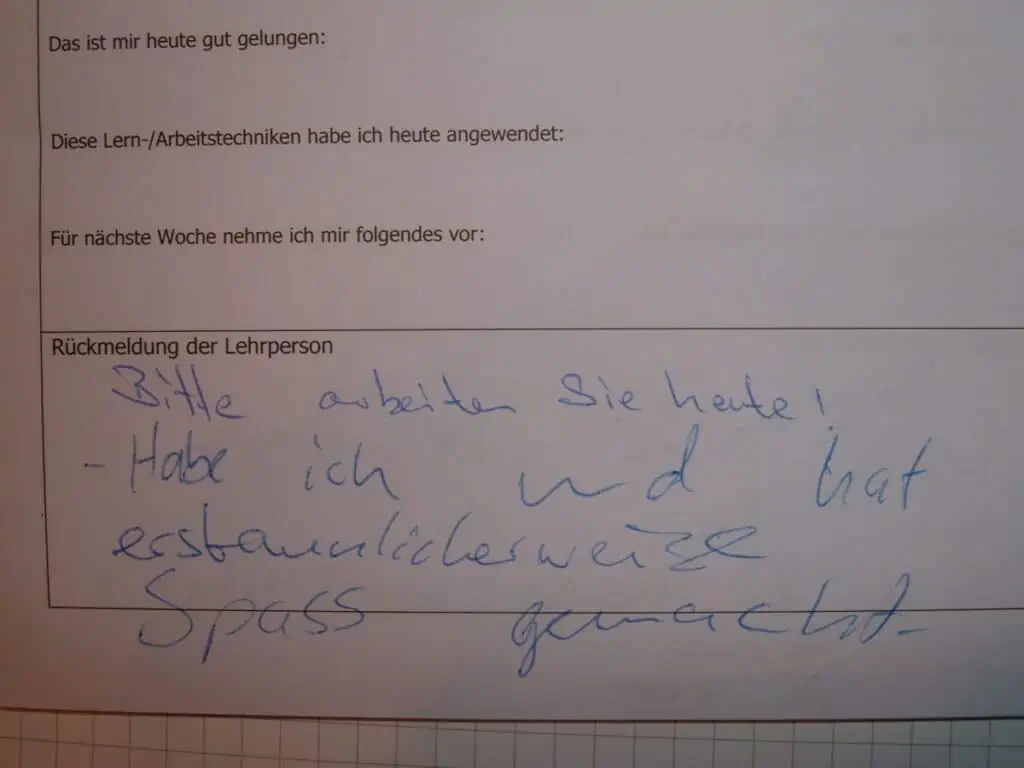 Das ist mir heute gut gelungen:
Diese Lern-/Arbeitstechniken habe ich heute angewendet:
Für nächste Woche nehme ich mir folgendes vor:
Rückmeldung der Lehrperson
Bitte arbeiten Sie heute!
- Habe ich und hat
erstaunlicherweise
Spass gemacht.